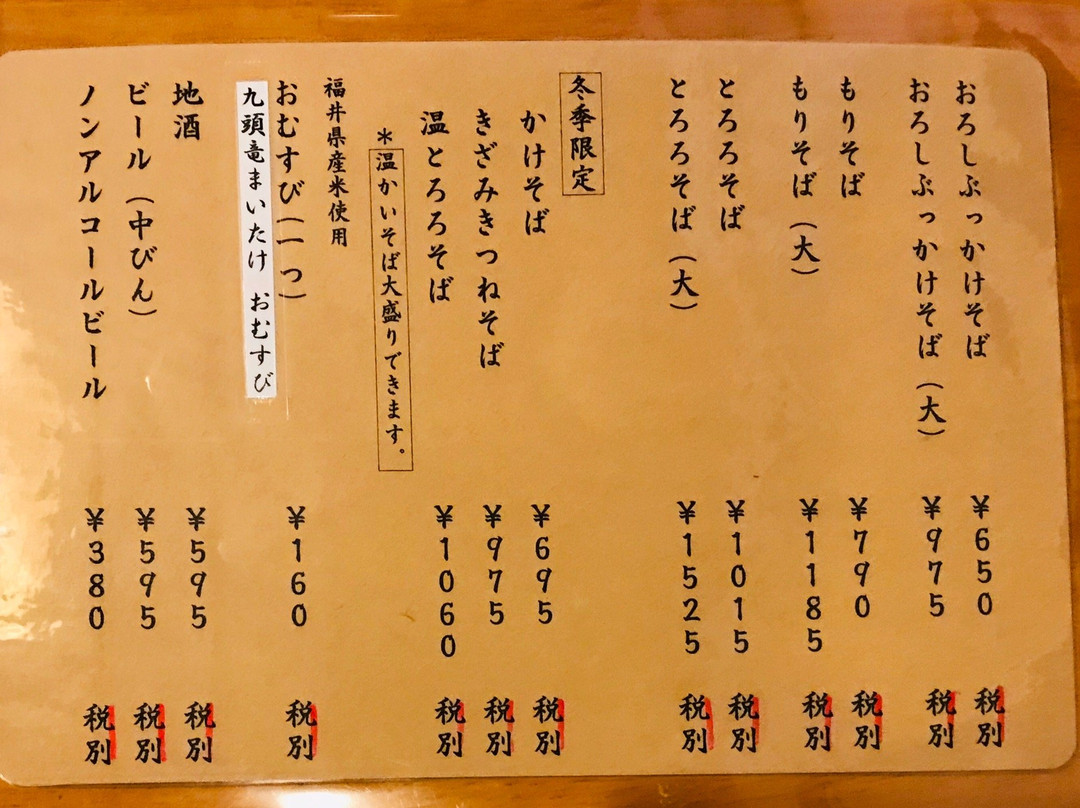 おろしぶっかけそば ¥650 税別
おろしぶっかけそば（大） ¥975 税別
もりそば ¥790 税別
もりそば（大） ¥1185 税別
とろろそば ¥1015 税別
とろろそば（大） ¥1525 税別
冬季限定
かけそば ¥695 税別
きざみきつねそば ¥975 税別
温とろろそば ¥1060 税別
＊温かいそば大盛りできます。
福井県産米使用
おむすび（一つ） ¥160 税別
九頭竜まいたけ おむすび
地酒 ¥595 税別
ビール（中びん） ¥595 税別
ノンアルコールビール ¥380 税別